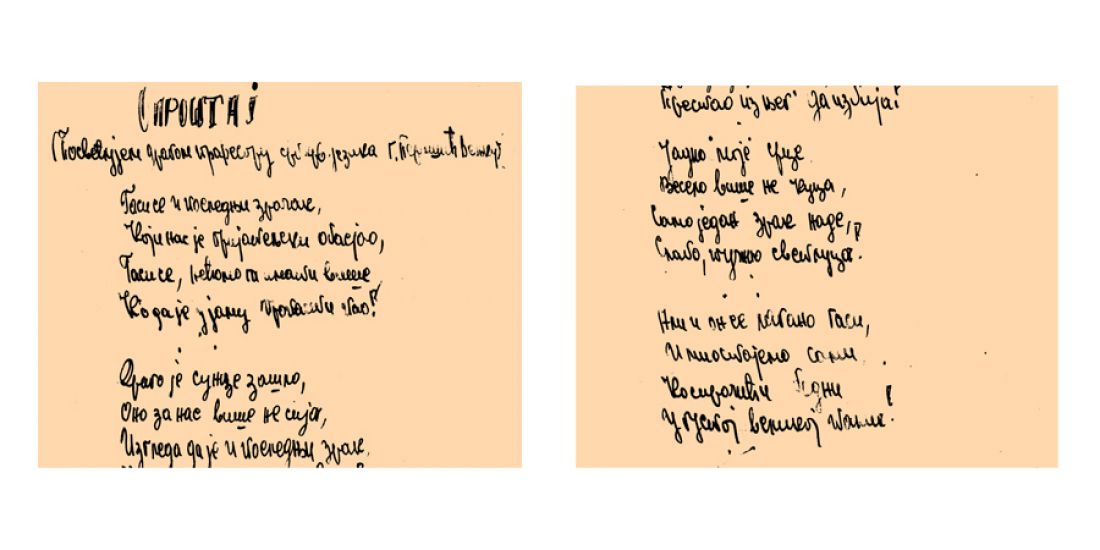 ОПРОШТАЈ
Посвећујем драгом професору срп. језика Г.
Гаси се и последњи зрачак,
Који нас је пријатељски обасјао,
Гаси се, нећемо га имати више
Ко да је у јаму пао!
Драго је сунце зашло,
Оно за нас више не сија,
Изгледа да је и последњи зрак
Престао из њег' да избија!
Јадно моје срце
Весело више не куца,
Само један зрак наде,
Слабо, тужно светлуца.
Али и он се лагано гаси,
И ми остајемо сами
бедни
У густој великој тами.